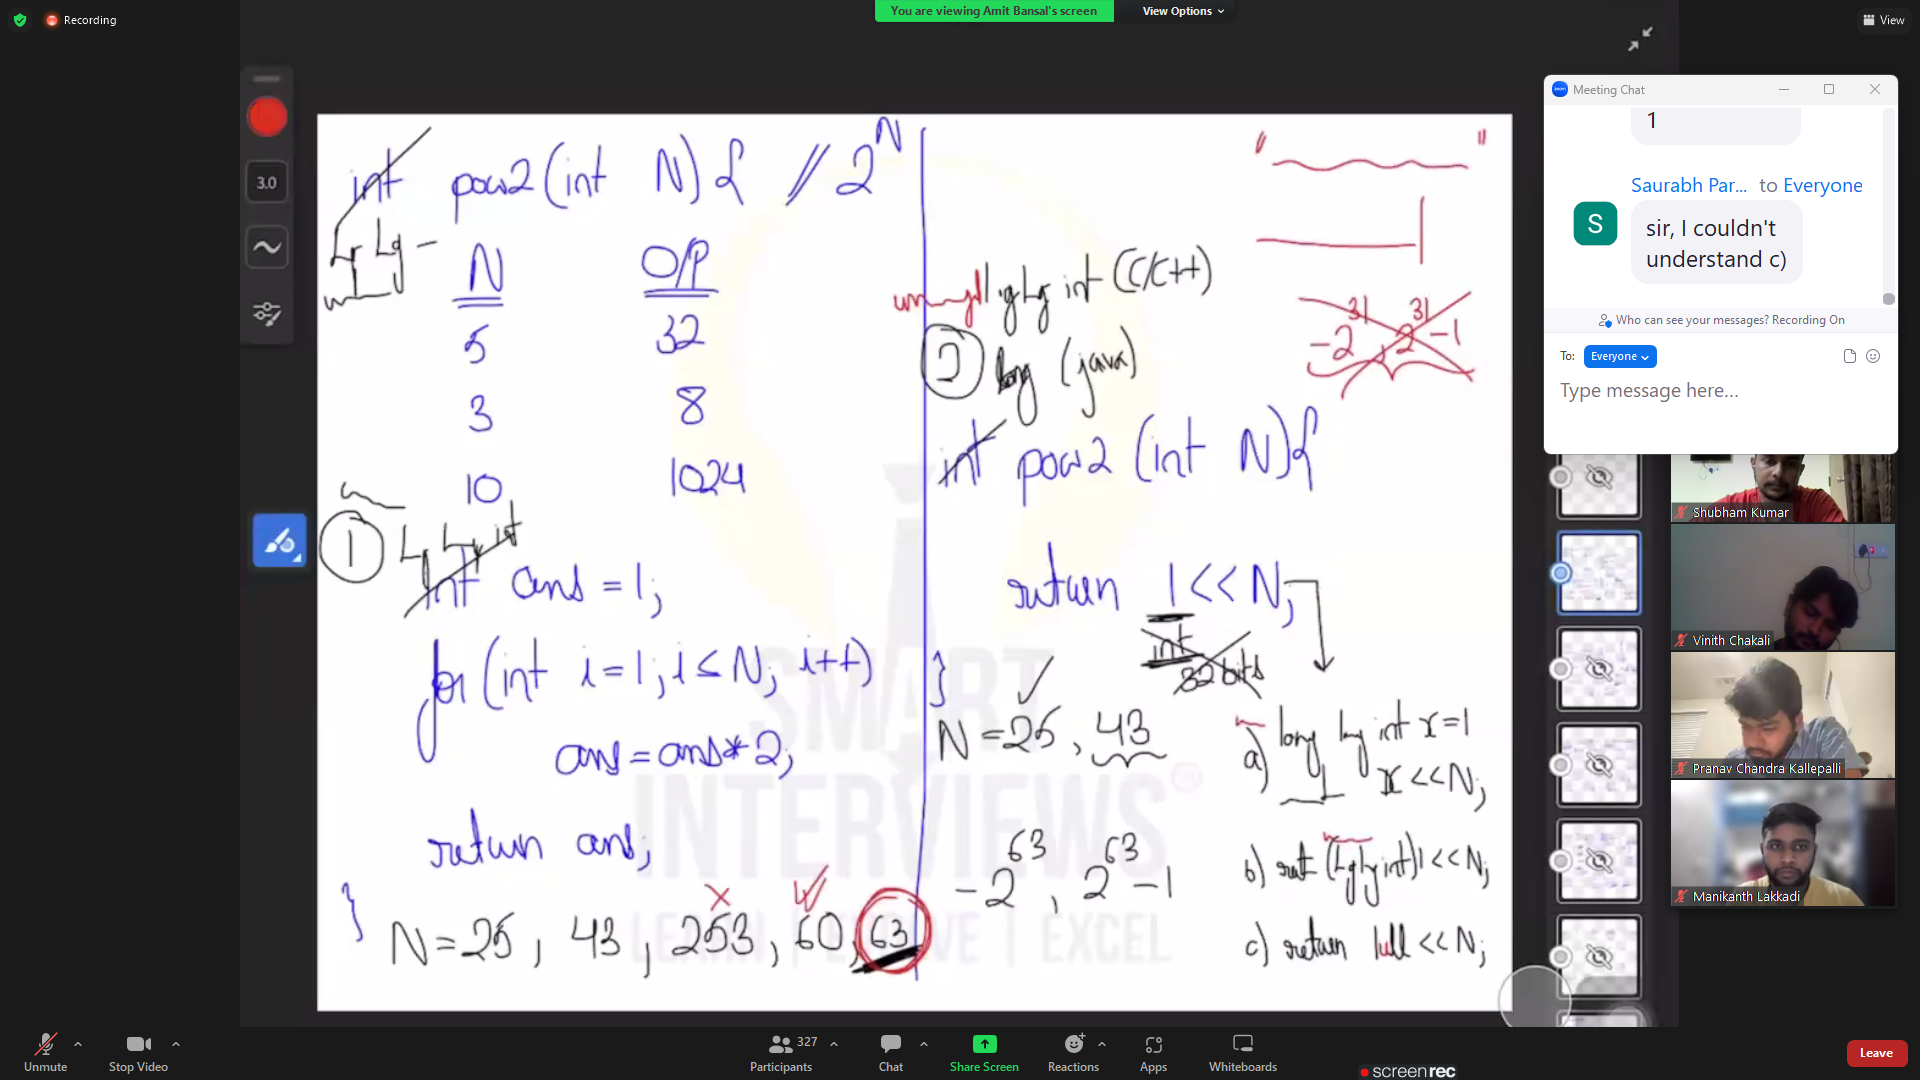 Recording
You are viewing Amit Bansal's screen
View Options
View
3.0
int pow2(int N){ // 2^N
N O/P
5 32
3 8
10 1024
1
int ans = 1;
for(int i=1; i≤N; i++)
ans = ans*2;
return ans;
}
N=25, 43, 253, 60, 63
" "
lg lg int (C/C++)
2 long (java)
-2^31 2^31 -1
int pow2 (int N){
return 1<<N;
int
32 bits
}
N=25, 43
-2^63, 2^63 -1
a) long long int x=1
x<<N;
b) ret (lg lg int)1<<N;
c) return 1ull <<N;
SMART
INTERVIEWS
EXCEL
Meeting Chat
1
Saurabh Par... to Everyone
S
sir, I couldn't
understand c)
Who can see your messages? Recording On
To: Everyone
Type message here...
Shubham Kumar
Vinith Chakali
Pranav Chandra Kallepalli
Manikanth Lakkadi
Unmute
Stop Video
327
Participants
Chat
Share Screen
Reactions
Apps
Whiteboards
screenrec
Leave